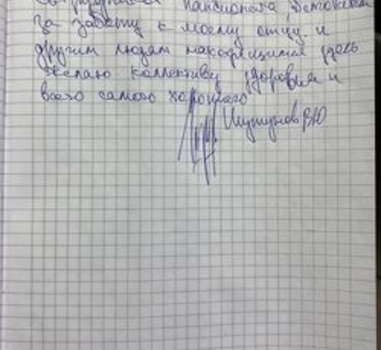 пансионата
за заботу к моему отцу и
другим людям находящимся здесь
Желаю коллективу здоровья и
всего самого хорошего